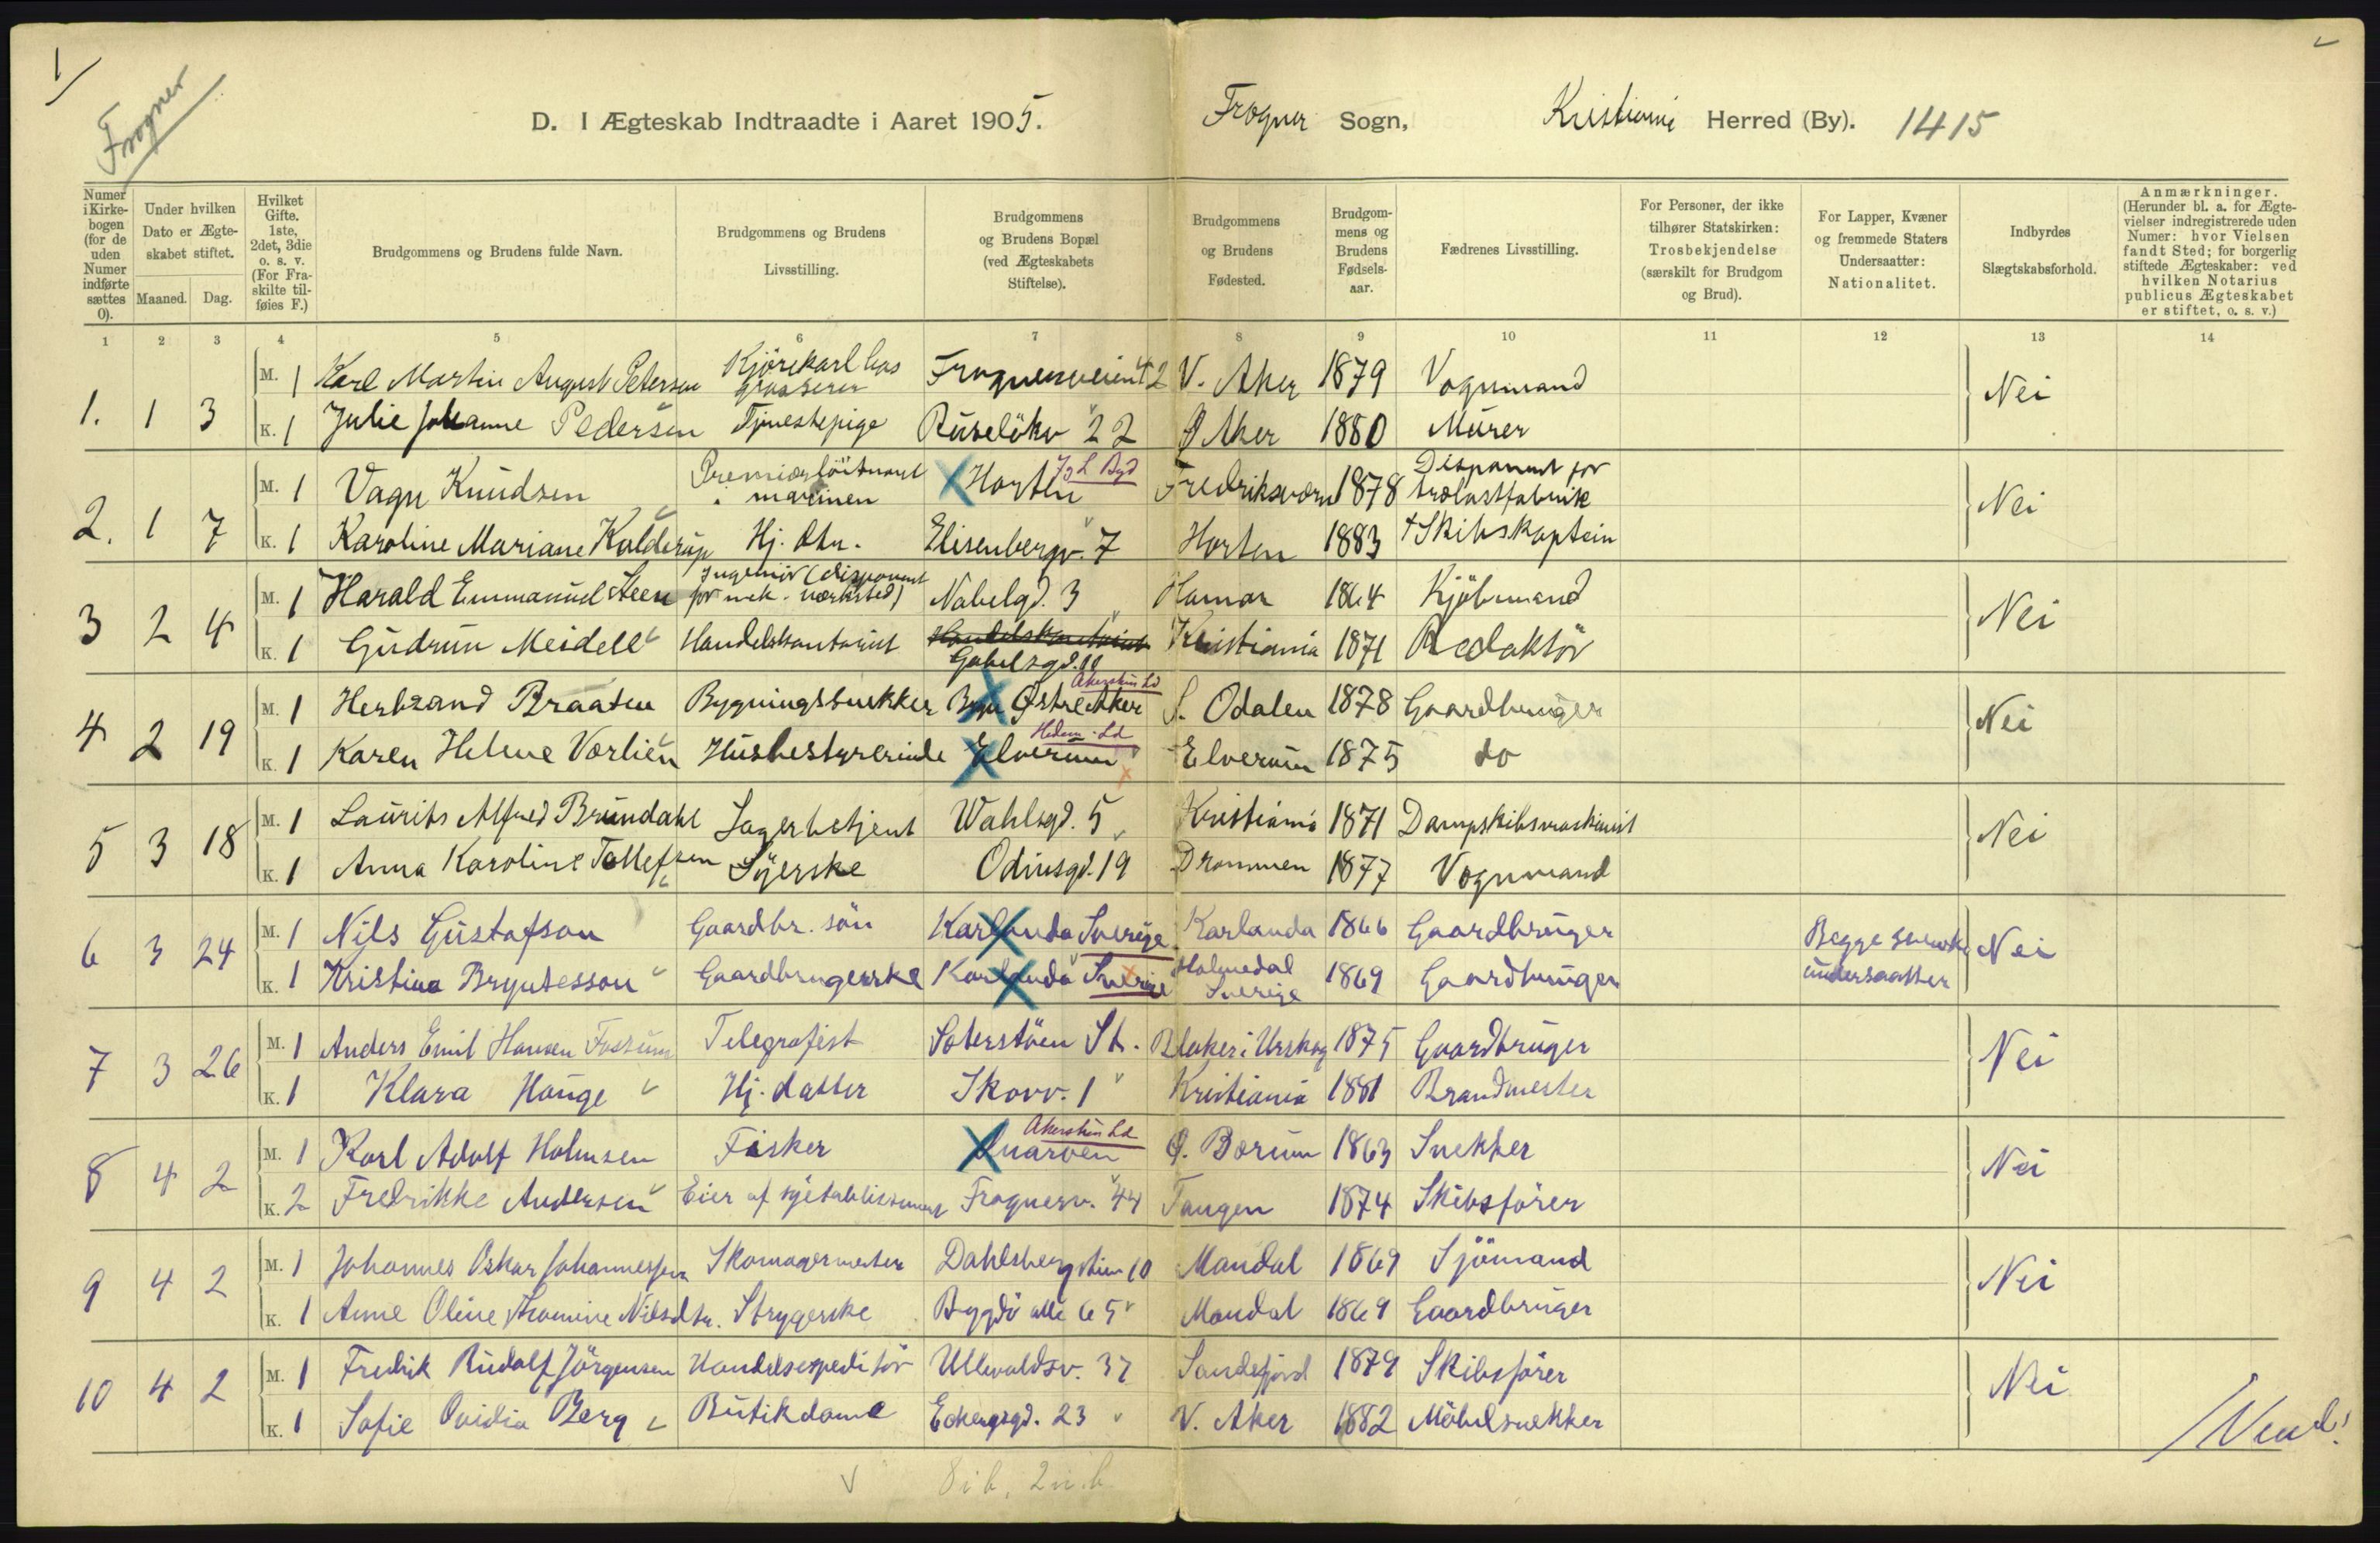 1
Frogner
D. I Ægteskab Indtraadte i Aaret 1905.
Frogner Sogn, Kristiania Herred (By). 1415
Numer i Kirkebogen (for de uden Numer indførte sættes 0).
Under hvilken Dato er Ægteskabet stiftet.
Maaned. Dag.
Hvilket Gifte. 1ste, 2det, 3die o. s. v. (For Fraskilte tilføies F.)
Brudgommens og Brudens fulde Navn.
Brudgommens og Brudens Livsstilling.
Brudgommens og Brudens Bopæl (ved Ægteskabets Stiftelse).
Brudgommens og Brudens Fødested.
Brudgommens og Brudens Fødselsaar.
Fædrenes Livsstilling.
For Personer, der ikke tilhører Statskirken: Trosbekjendelse (særskilt for Brudgom og Brud).
For Lapper, Kvæner og fremmede Staters Undersaatter: Nationalitet.
Indbyrdes Slægtskabsforhold.
Anmærkninger. (Herunder bl. a. for Ægtevielser indregistrerede uden Numer: hvor Vielsen fandt Sted; for borgerlig stiftede Ægteskaber: ved hvilken Notarius publicus Ægteskabet er stiftet, o. s. v.)
1 2 3 4 5 6 7 8 9 10 11 12 13 14
1. 1 3 M. 1 Karl Martin August Petersen Kjørekarl hos grosserer Frognerveien 42 V. Aker 1879 Vognmand Nei
K. 1 Julie Johanne Pedersen Tjenestepige Ruseløkv 22 Ø Aker 1880 Murer
2. 1 7 M. 1 Vagn Knudsen Premierløitnant i marinen Horten Fredriksværn 1878 Disponent for trælastfabrik Nei
K. 1 Karoline Mariane Kolderup Hj. dtr. Elisenbergv. 7 Horten 1883 †Skibskaptein
3 2 4 M. 1 Harald Emmanuel Steen Ingeniør (disponent for mek. værksted) Nobelgd. 3 Hamar 1864 Kjøbmand Nei
K. 1 Gudrun Meidell Handelskontorist Gabelsgd. 11 Kristiania 1871 Redaktør
4 2 19 M. 1 Herbrand Braaten Bygningssnekker Østre Aker Akershus Ld S. Odalen 1878 Gaardbruger Nei
K. 1 Karen Helene Vorlien Husbestyrerinde Elverum Hedm. Ld Elverum 1875 do
5 3 18 M. 1 Laurits Alfred Brundahl Lagerbetjent Wahlsgd. 5 Kristiania 1871 Dampskibsmaskinist Nei
K. 1 Anna Karoline Tollefsen Syerske Odinsgd. 19 Drammen 1877 Vognmand
6 3 24 M. 1 Nils Gustafson Gaardbr. søn Karlanda Sverige Karlanda 1866 Gaardbruger Begge svenske undersaatter Nei
K. 1 Kristina Bryntesson Gaardbrugerske Karlanda Sverige Holmedal Sverige 1869 Gaardbruger
7 3 26 M. 1 Anders Emil Hansen Fossum Telegrafist Soterstøen St. Blaker i Urskog 1875 Gaardbruger Nei
K. 1 Klara Hauge Hj. datter Skovv. 1 Kristiania 1881 Brandmester
8 4 2 M. 1 Karl Adolf Holmsen Fisker Snarøen Akershus Ld Ø. Bærum 1863 Snekker Nei
K. 2 Fredrikke Andersen Eier af syetablissement Frognerv. 44 Tangen 1874 Skibsfører
9 4 2 M. 1 Johannes Oskar Johannessen Skomagermester Dahlsbergstien 10 Mandal 1869 Sjømand Nei
K. 1 Anne Oline Thomine Nilsdtr. Strygerske Bygdø alle 65 Mandal 1869 Gaardbruger
10 4 2 M. 1 Fredrik Rudolf Jörgensen Handelsexpeditør Ullevoldsv. 37 Sandefjord 1879 Skibsfører Nei
K. 1 Sofie Ovidia Berg Butikdame Eckersgd. 23 V. Aker 1882 Møbelsnekker
Vend!
8 i b, 2 u. b.